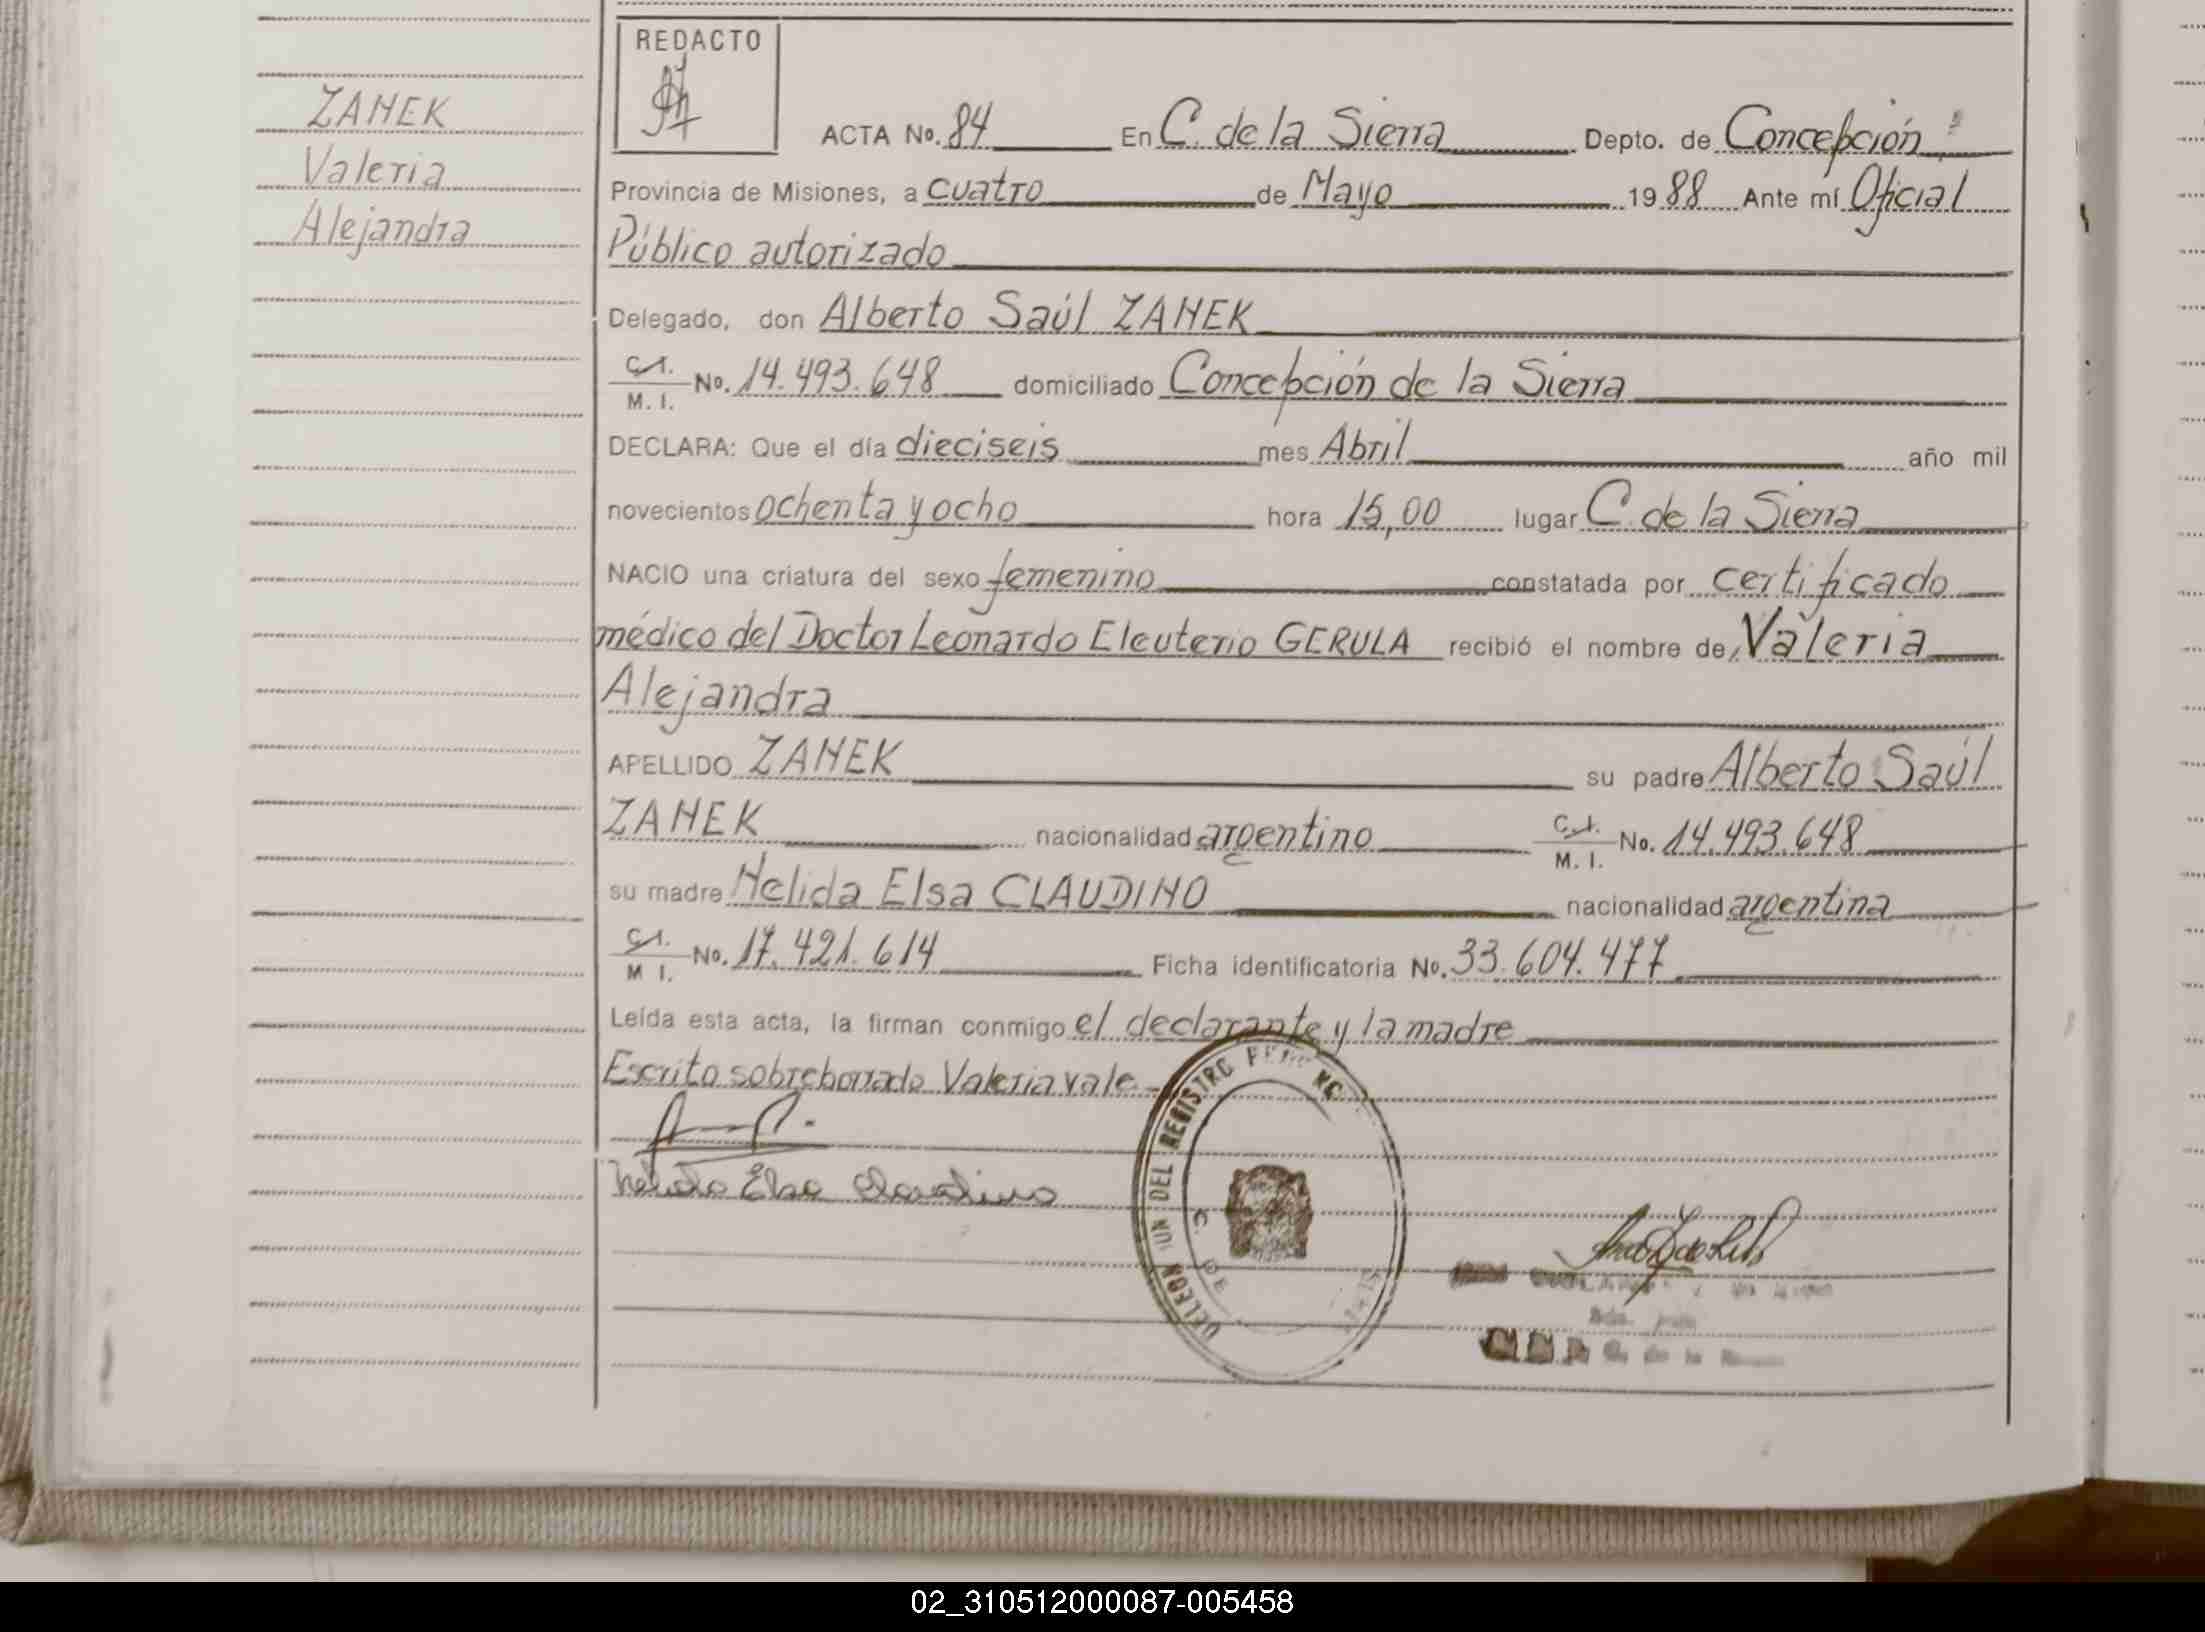 REDACTO
ZANEK
Valeria
Alejandra
ACTA No. 84 En C. de la Sierra Depto. de Concepción
Provincia de Misiones, a cuatro de Mayo 1988 Ante mí Oficial
Público autorizado
Delegado, don Alberto Saúl ZANEK
C.I. M. I. No. 14.493.648 domiciliado Concepción de la Sierra
DECLARA: Que el día dieciseis mes Abril año mil
novecientos ochenta y ocho hora 15,00 lugar C. de la Sierra
NACIO una criatura del sexo femenino constatada por certificado
médico del Doctor Leonardo Eleuterio GERULA recibió el nombre de Valeria
Alejandra
APELLIDO ZANEK su padre Alberto Saúl
ZANEK nacionalidad argentino C.I. M. I. No. 14.493.648
su madre Nelida Elsa CLAUDINO nacionalidad argentina
C.I. M I. No. 17.421.614 Ficha identificatoria No. 33.604.477
Leída esta acta, la firman conmigo el declarante y la madre
Escrito sobreborrado Valeria vale
Nelida Elsa Claudino
DEL REGISTRO
C. DE
02_310512000087-005458